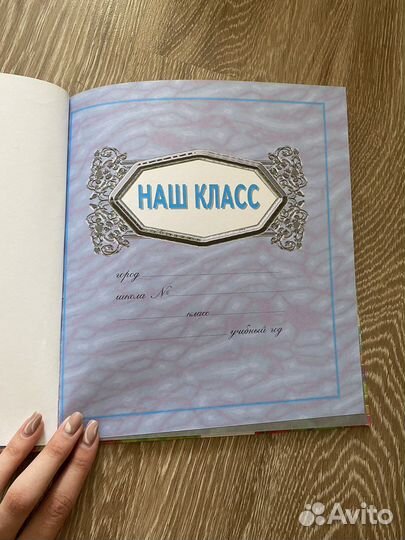 НАШ КЛАСС
город
школа №
класс
учебный год
Avito